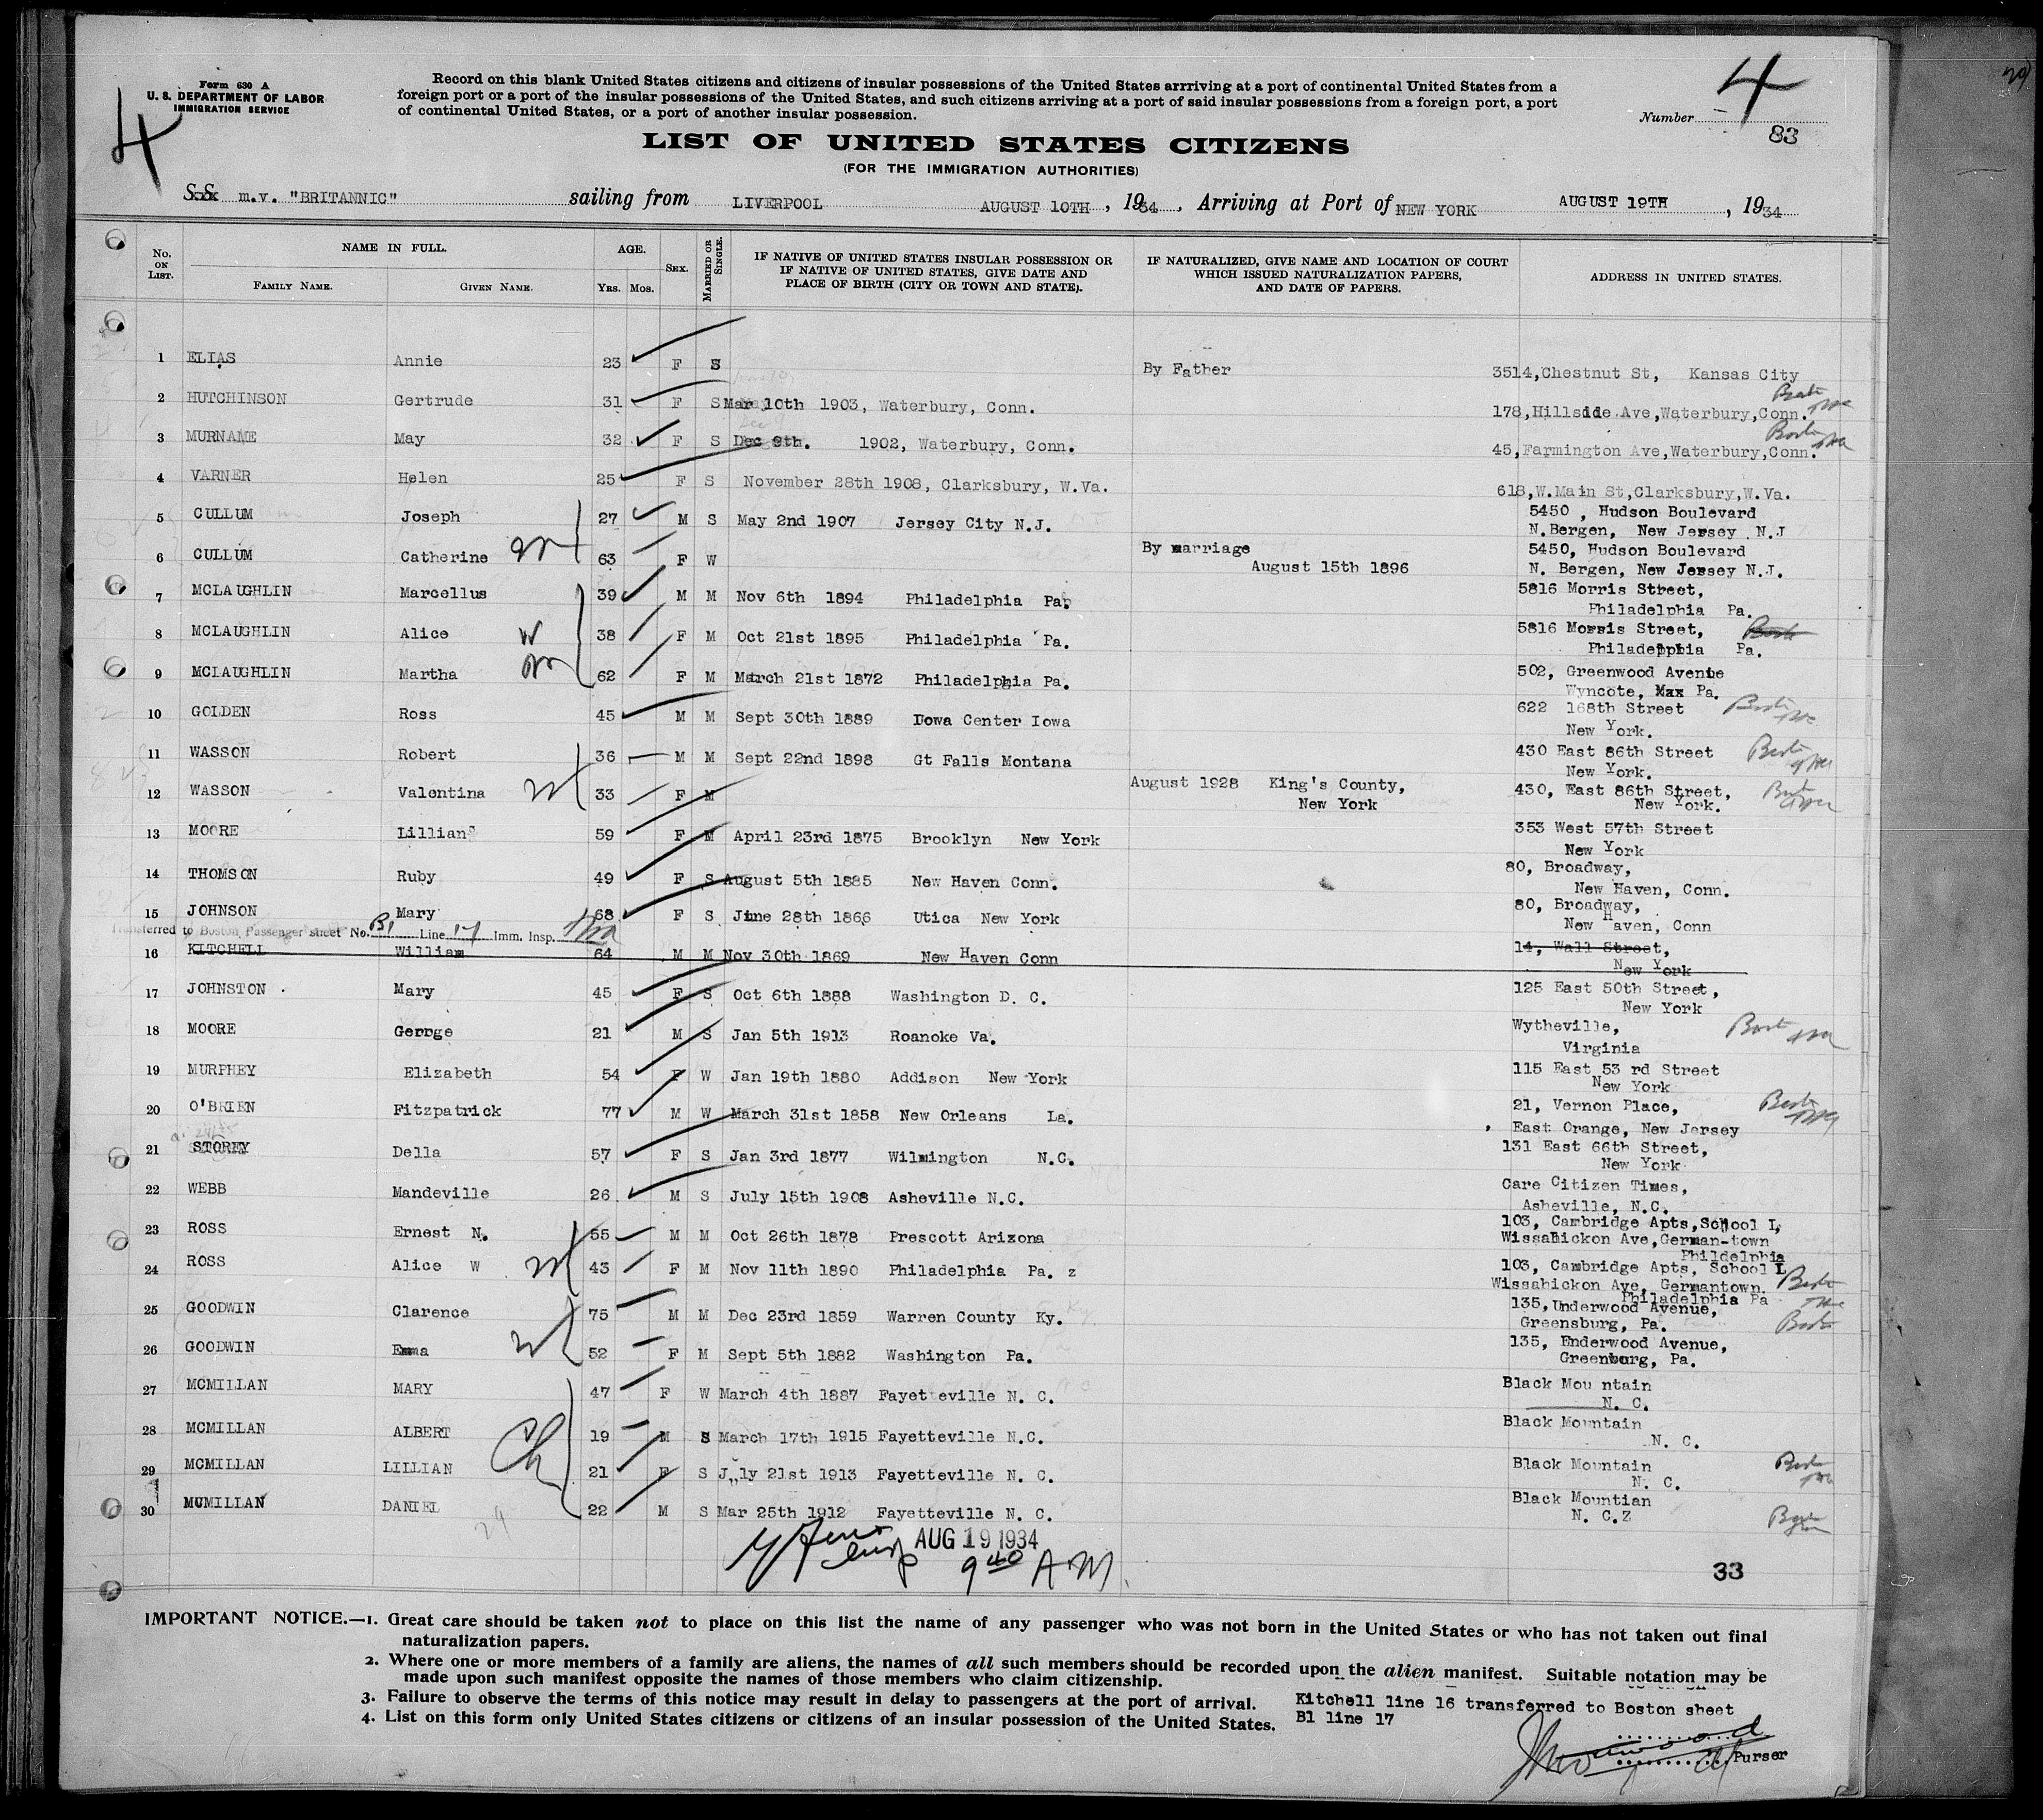 Form 630 A
U. S. DEPARTMENT OF LABOR
IMMIGRATION SERVICE
4
Record on this blank United States citizens and citizens of insular possessions of the United States arrriving at a port of continental United States from a
foreign port or a port of the insular possessions of the United States, and such citizens arriving at a port of said insular possessions from a foreign port, a port
of continental United States, or a port of another insular possession.
Number 4
83
LIST OF UNITED STATES CITIZENS
(FOR THE IMMIGRATION AUTHORITIES)
S.S. m.v. "BRITANNIC" sailing from LIVERPOOL AUGUST 10TH , 1934 , Arriving at Port of NEW YORK AUGUST 19TH , 1934
No. ON LIST. NAME IN FULL. FAMILY NAME. GIVEN NAME. AGE. YRS. MOS. SEX. MARRIED OR SINGLE.
IF NATIVE OF UNITED STATES INSULAR POSSESSION OR
IF NATIVE OF UNITED STATES, GIVE DATE AND
PLACE OF BIRTH (CITY OR TOWN AND STATE).
IF NATURALIZED, GIVE NAME AND LOCATION OF COURT
WHICH ISSUED NATURALIZATION PAPERS,
AND DATE OF PAPERS.
ADDRESS IN UNITED STATES.
1 ELIAS Annie 23 F S By Father 3514,Chestnut St, Kansas City
2 HUTCHINSON Gertrude 31 F S Mar 10th 1903, Waterbury, Conn. 178,Hillside Ave,Waterbury,Conn.
3 MURNAME May 32 F S Dec 9th. 1902, Waterbury, Conn. 45,Farmington Ave,Waterbury,Conn.
4 VARNER Helen 25 F S November 28th 1908, Clarksbury, W.Va. 618,W.Main St,Clarksbury,W.Va.
5 CULLUM Joseph 27 M S May 2nd 1907 Jersey City N.J. 5450 , Hudson Boulevard
N.Bergen, New Jersey N.J
6 CULLUM Catherine 63 F W By marriage 5450, Hudson Boulevard
August 15th 1896 N. Bergen, New Jersey N.J.
7 MCLAUGHLIN Marcellus 39 M M Nov 6th 1894 Philadelphia Pa. 5816 Morris Street,
Philadelphia Pa.
8 MCLAUGHLIN Alice 38 F M Oct 21st 1895 Philadelphia Pa. 5816 Morris Street,
Philadepphia Pa.
9 MCLAUGHLIN Martha 62 F M March 21st 1872 Philadelphia Pa. 502, Greenwood Avenue
Wyncote, Pa.
10 GOLDEN Ross 45 M M Sept 30th 1889 Iowa Center Iowa 622 168th Street
New York.
11 WASSON Robert 36 M M Sept 22nd 1898 Gt Falls Montana 430 East 86th Street
New York.
12 WASSON Valentina 33 F M August 1928 King's County, 430, East 86th Street,
New York New York.
13 MOORE Lillian 59 F M April 23rd 1875 Brooklyn New York 353 West 57th Street
New York
14 THOMSON Ruby 49 F S August 5th 1885 New Haven Conn. 80, Broadway,
New Haven, Conn.
15 JOHNSON Mary 68 F S June 28th 1866 Utica New York 80, Broadway,
New Haven, Conn
Transferred to Boston Passenger street No. B1 Line 17 Imm. Insp.
16 KITCHELL William 64 M M Nov 30th 1869 New Haven Conn 14, Wall Street,
New York
17 JOHNSTON . Mary 45 F S Oct 6th 1888 Washington D. C. 125 East 50th Street,
New York
18 MOORE George 21 M S Jan 5th 1913 Roanoke Va. Wytheville,
Virginia
19 MURPHEY Elizabeth 54 F W Jan 19th 1880 Addison New York 115 East 53 rd Street
New York
20 O'BRIEN Fitzpatrick 77 M W March 31st 1858 New Orleans La. 21, Vernon Place,
East Orange, New Jersey
21 STOREY Della 57 F S Jan 3rd 1877 Wilmington N.C. 131 East 66th Street,
New York
22 WEBB Mandeville 26 M S July 15th 1908 Asheville N.C. Care Citizen Times,
Asheville, N.C.
23 ROSS Ernest N. 55 M M Oct 26th 1878 Prescott Arizona 103, Cambridge Apts,School L,
Wissahickon Ave,German-town
Phildelphia
24 ROSS Alice W 43 F M Nov 11th 1890 Philadelphia Pa. z 103, Cambridge Apts, School L
Wissahickon Ave, Germantown.
Philadelphia Pa
25 GOODWIN Clarence 75 M M Dec 23rd 1859 Warren County Ky. 135,Underwood Avenue,
Greensburg, Pa.
26 GOODWIN Emma 52 F M Sept 5th 1882 Washington Pa. 135, Underwood Avenue,
Greenburg, Pa.
27 MCMILLAN MARY 47 F W March 4th 1887 Fayetteville N. C. Black Mountain
N. C.
28 MCMILLAN ALBERT 19 M S March 17th 1915 Fayetteville N.C. Black Mountain
N. C.
29 MCMILLAN LILLIAN 21 F S July 21st 1913 Fayetteville N. C. Black Mountain
N. C.
30 MCMILLAN DANIEL 22 M S Mar 25th 1912 Fayetteville N. C. Black Mountian
N. C.Z
AUG 19 1934
9 40 A M.
33
IMPORTANT NOTICE.—1. Great care should be taken not to place on this list the name of any passenger who was not born in the United States or who has not taken out final
naturalization papers.
2. Where one or more members of a family are aliens, the names of all such members should be recorded upon the alien manifest. Suitable notation may be
made upon such manifest opposite the names of those members who claim citizenship.
3. Failure to observe the terms of this notice may result in delay to passengers at the port of arrival.
4. List on this form only United States citizens or citizens of an insular possession of the United States.
Kitchell line 16 transferred to Boston sheet
B1 line 17
Purser